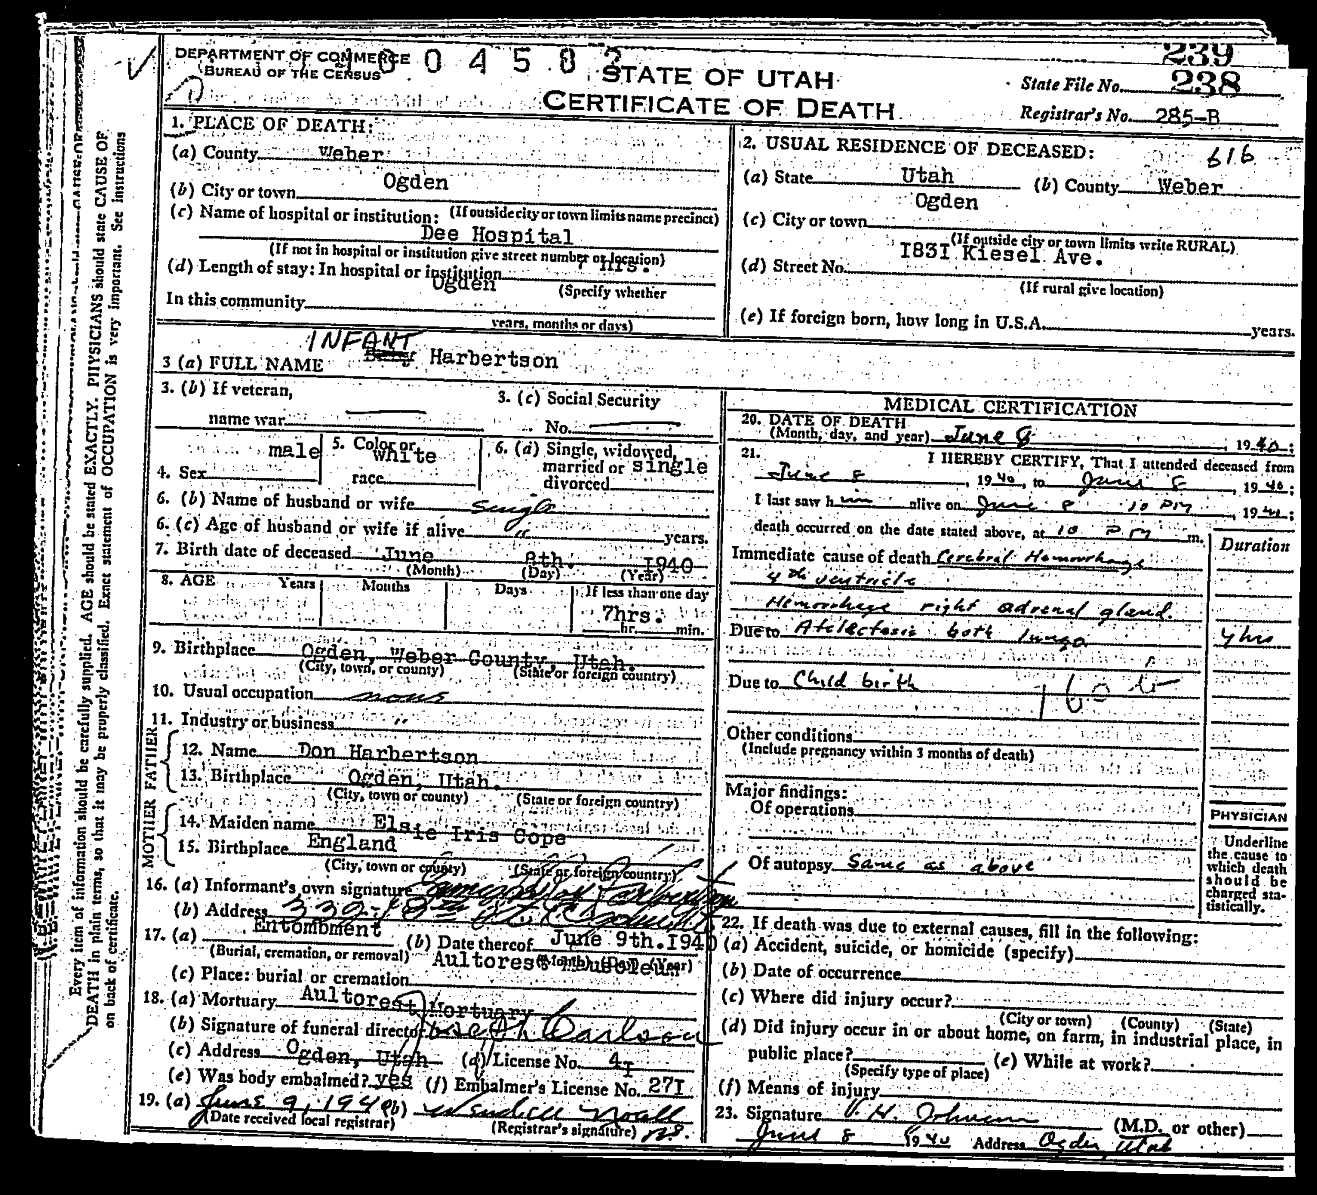 239
DEPARTMENT OF COMMERCE
BUREAU OF THE CENSUS
STATE OF UTAH
CERTIFICATE OF DEATH
State File No. 238
Registrar's No. 285-B
1. PLACE OF DEATH:
(a) County Weber
(b) City or town Ogden
(If outside city or town limits name precinct)
(c) Name of hospital or institution:
Dee Hospital
(If not in hospital or institution give street number or location)
(d) Length of stay: In hospital or institution 7 hrs.
(Specify whether
In this community Ogden
years, months or days)
2. USUAL RESIDENCE OF DECEASED: 616
(a) State Utah (b) County Weber
(c) City or town Ogden
(If outside city or town limits write RURAL)
(d) Street No. I83I Kiesel Ave.
(If rural give location)
(e) If foreign born, how long in U.S.A. years.
3 (a) FULL NAME INFANT Baby Harbertson
3. (b) If veteran,
name war
3. (c) Social Security
No.
4. Sex male
5. Color or
race white
6. (a) Single, widowed,
married or single
divorced
6. (b) Name of husband or wife Single
6. (c) Age of husband or wife if alive " years.
7. Birth date of deceased June 8th. I940
(Month) (Day) (Year)
8. AGE Years Months Days If less than one day
7hrs.
hr. min.
9. Birthplace Ogden, Weber County, Utah.
(City, town, or county) (State or foreign country)
10. Usual occupation none
11. Industry or business "
FATHER
12. Name Don Harbertson
13. Birthplace Ogden, Utah.
(City, town or county) (State or foreign country)
MOTHER
14. Maiden name Elsie Iris Cope
15. Birthplace England
(City, town or county) (State or foreign country)
16. (a) Informant's own signature
(b) Address
17. (a) Entombment (b) Date thereof June 9th. I940
(Burial, cremation, or removal) (Month) (Day) (Year)
(c) Place: burial or cremation Aultorest Mausoleum
18. (a) Mortuary Aultorest Mortuary
(b) Signature of funeral director Joseph Carlson
(c) Address Ogden, Utah (d) License No. 4I
(e) Was body embalmed? yes (f) Embalmer's License No. 27I
19. (a) June 9, 1940 (b)
(Date received local registrar) (Registrar's signature)
MEDICAL CERTIFICATION
20. DATE OF DEATH
(Month, day, and year) June 8, 1940;
21. I HEREBY CERTIFY, That I attended deceased from
June 8, 1940, to June 8, 1940;
I last saw him alive on June 8 10 PM, 1940;
death occurred on the date stated above, at 10 P M m.
Duration
Immediate cause of death Cerebral Hemorrhage
4th ventricle
Hemorrhage right adrenal gland.
Due to Atelectosis both lungs 7 hrs
Due to Child birth
160
Other conditions
(Include pregnancy within 3 months of death)
Major findings:
Of operations
Of autopsy Same as above
PHYSICIAN
Underline
the cause to
which death
should be
charged sta-
tistically.
22. If death was due to external causes, fill in the following:
(a) Accident, suicide, or homicide (specify)
(b) Date of occurrence
(c) Where did injury occur?
(City or town) (County) (State)
(d) Did injury occur in or about home, on farm, in industrial place, in
public place? (e) While at work?
(Specify type of place)
(f) Means of injury
23. Signature V. H. Johnson (M.D. or other)
June 8 1940 Address Ogden, Utah
Every item of information should be carefully supplied. AGE should be stated EXACTLY. PHYSICIANS should state CAUSE OF
DEATH in plain terms, so that it may be properly classified. Exact statement of OCCUPATION is very important. See instructions
on back of certificate.